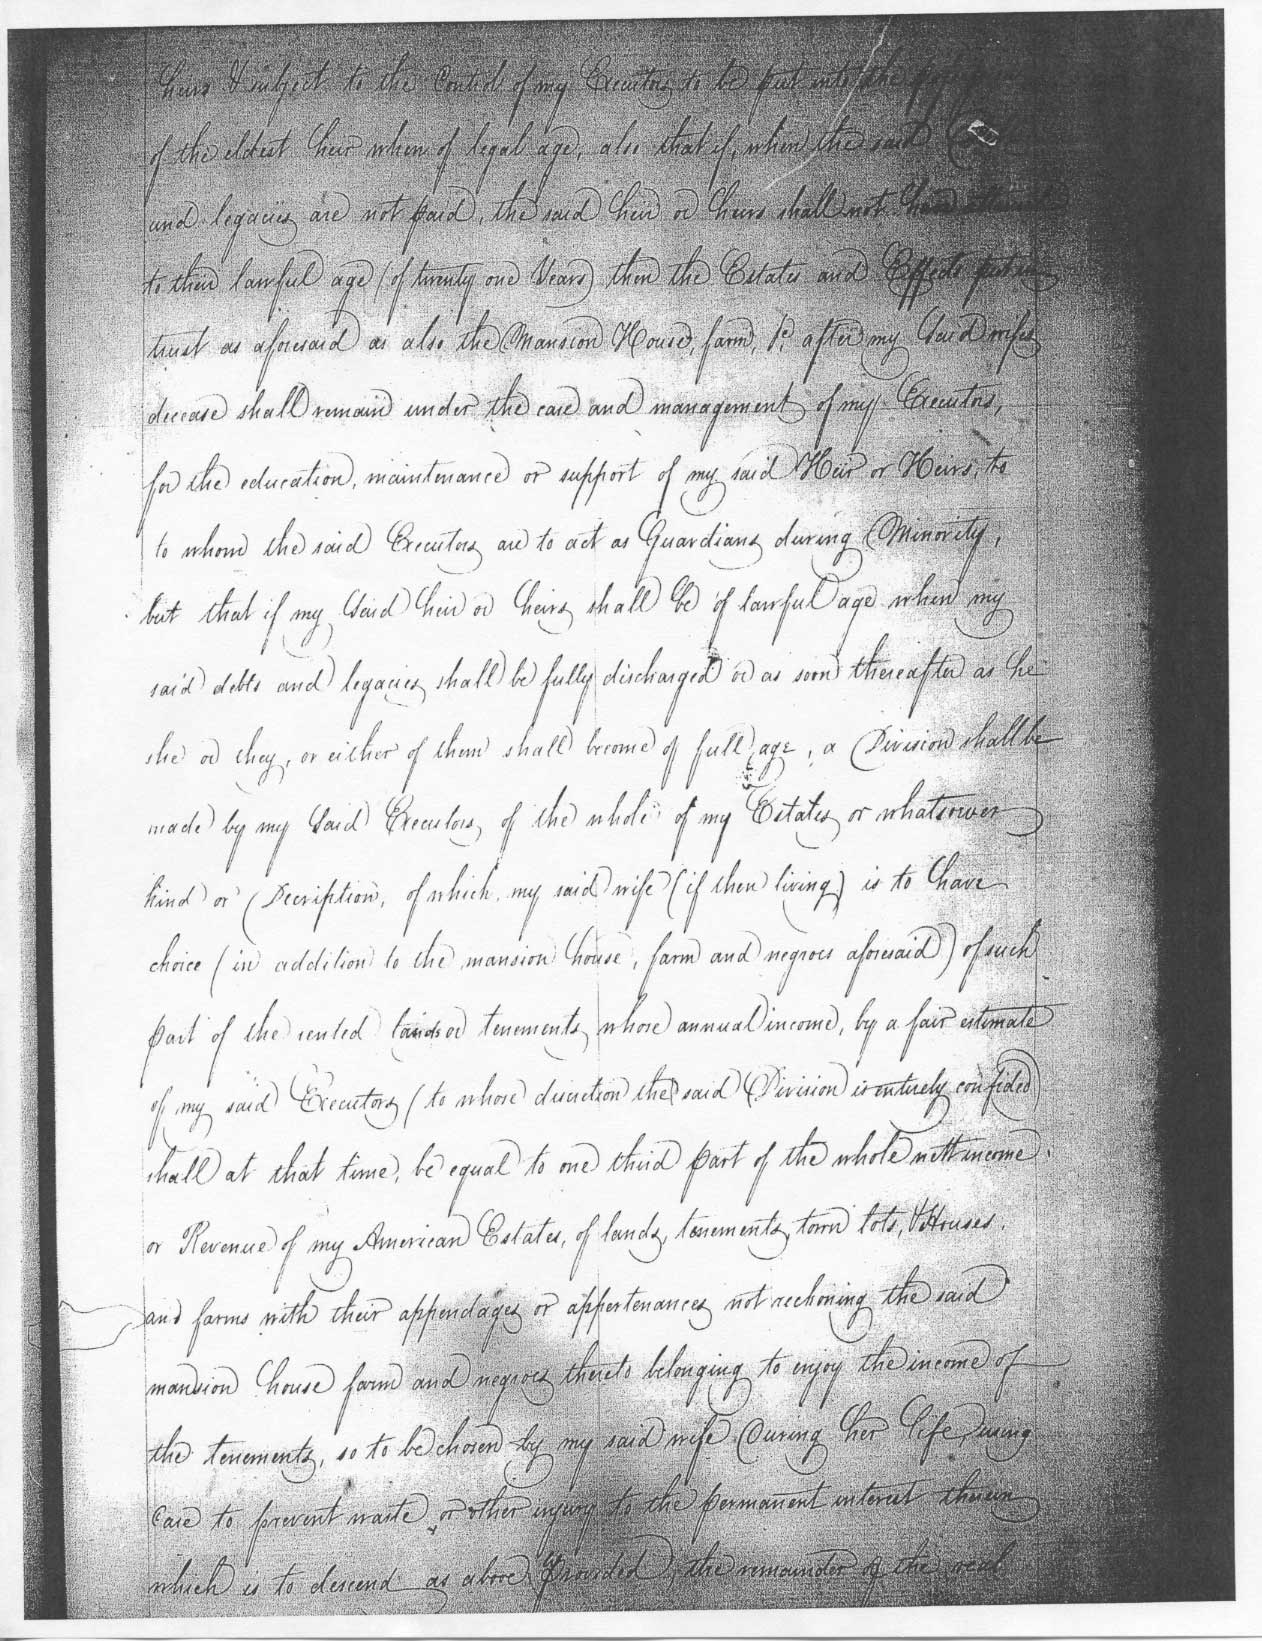 heirs & subject to the Control of my Executors to be put into the
of the eldest heir when of legal age, also that if, when the said
and legacies are not paid, the said heir or heirs shall not have
to their lawful age (of twenty one Years) then the Estates and Effects put in
trust as aforesaid as also the Mansion House, farm, &c. after my Said wifes
decease shall remain under the care and management of my Executors,
for the education, maintenance or support of my said Heir or Heirs, to
to whom the said Executors are to act as Guardians during Minority,
but that if my Said heir or heirs shall be of lawful age when my
said debts and legacies shall be fully discharged or as soon thereafter as he
she or they, or either of them shall become of full age, a Division shall be
made by my Said Executors, of the whole of my Estates or whatsoever
kind or Decription, of which my said wife (if then living) is to have
choice (in addition to the mansion house, farm and negroes aforesaid) of such
part of the rented lands or tenements, whose annual income, by a fair estimate
of my said Executors (to whose discretion the said Division is entirely confided)
shall at that time, be equal to one third part of the whole nett income
or Revenue of my American Estates, of lands, tenements, town lots, & Houses.
and farms with their appendages or appertenances not reckoning the said
mansion house farm and negroes thereto belonging to enjoy the income of
the tenements, so to be chosen by my said wife During her life, using
Care to prevent waste, or other injury to the permanent interest therein
which is to descend as above Provided, the remainder of the real